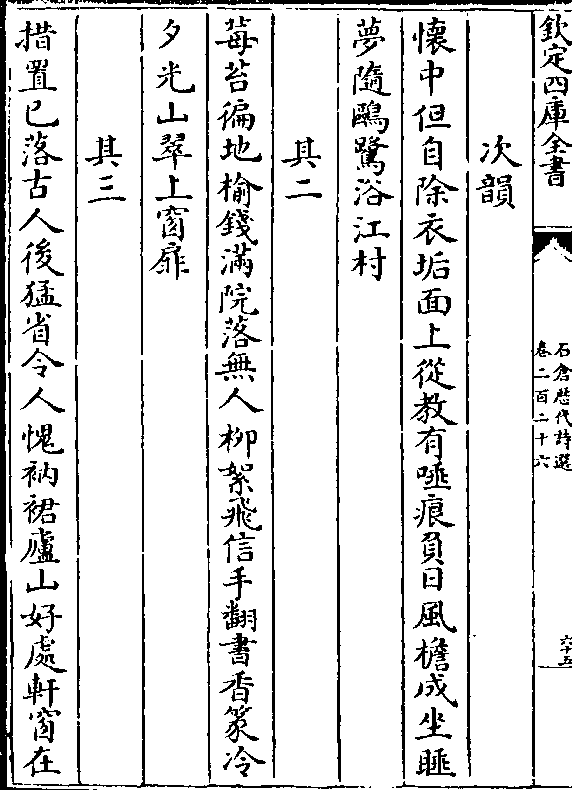 欽定四庫全書
石倉歷代詩選
卷二百二十六
六十五
次韻
懷中但自除衣垢面上從教有唾痕負日風檐成坐睡
夢隨鷗鷺浴江村
其二
莓苔徧地榆錢滿院落無人柳絮飛信手翻書香篆冷
夕光山翠上窗扉
其三
措置已落古人後猛省令人愧衲裙廬山好處軒窗在